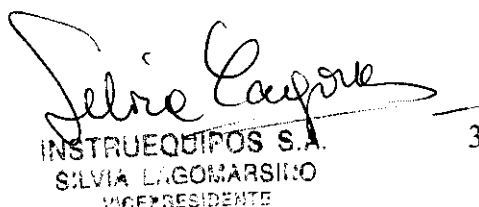 Silvia Lagomarsino
INSTRUEQUIPOS S.A.
3
SILVIA LAGOMARSINO
VICEPRESIDENTE